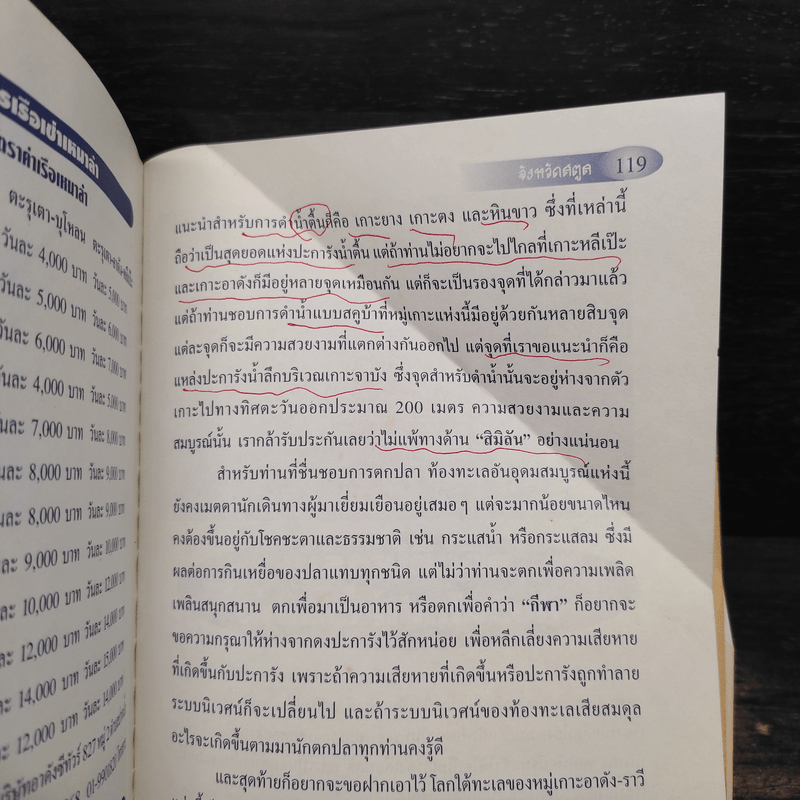 รเรือเช่าเหมาลำ
ตราค่าเรือเหมาลำ
ตะรุเตา-บุโหลน
วันละ 4,000 บาท วันละ 5,000 บาท
วันละ 5,000 บาท วันละ 6,000 บาท
วันละ 6,000 บาท วันละ 7,000 บาท
วันละ 4,000 บาท วันละ 5,000 บาท
ละ 7,000 บาท วันละ 8,000 บาท
ละ 8,000 บาท วันละ 9,000 บาท
ละ 8,000 บาท วันละ 9,000 บาท
ละ 9,000 บาท วันละ 10,000 บาท
ละ 10,000 บาท วันละ 12,000 บาท
ละ 12,000 บาท วันละ 14,000 บาท
ละ 14,000 บาท วันละ 15,000 บาท
ละ 12,000 บาท วันละ 14,000 บาท
ริษัทอาดังซีทัวร์ 827 หมู่ 2
จังหวัดสตูล 119
แนะนำสำหรับการดำน้ำตื้นก็คือ เกาะยาง เกาะดง และหินขาว ซึ่งที่เหล่านี้
ถือว่าเป็นสุดยอดแห่งปะการังน้ำตื้น แต่ถ้าท่านไม่อยากจะไปไกลที่เกาะหลีเป๊ะ
และเกาะอาดังก็มีอยู่หลายจุดเหมือนกัน แต่ก็จะเป็นรองจุดที่ได้กล่าวมาแล้ว
แต่ถ้าท่านชอบการดำน้ำแบบสคูบ้าที่หมู่เกาะแห่งนี้มีอยู่ด้วยกันหลายสิบจุด
แต่ละจุดก็จะมีความสวยงามที่แตกต่างกันออกไป แต่จุดที่เราขอแนะนำก็คือ
แหล่งปะการังน้ำลึกบริเวณเกาะจาบัง ซึ่งจุดสำหรับดำน้ำนั้นจะอยู่ห่างจากตัว
เกาะไปทางทิศตะวันออกประมาณ 200 เมตร ความสวยงามและความ
สมบูรณ์นั้น เรากล้ารับประกันเลยว่าไม่แพ้ทางด้าน “สิมิลัน” อย่างแน่นอน
สำหรับท่านที่ชื่นชอบการตกปลา ท้องทะเลอันอุดมสมบูรณ์แห่งนี้
ยังคงเมตตานักเดินทางผู้มาเยี่ยมเยือนอยู่เสมอๆ แต่จะมากน้อยขนาดไหน
คงต้องขึ้นอยู่กับโชคชะตาและธรรมชาติ เช่น กระแสน้ำ หรือกระแสลม ซึ่งมี
ผลต่อการกินเหยื่อของปลาแทบทุกชนิด แต่ไม่ว่าท่านจะตกเพื่อความเพลิด
เพลินสนุกสนาน ตกเพื่อมาเป็นอาหาร หรือตกเพื่อคำว่า “กีฬา” ก็อยากจะ
ขอความกรุณาให้ห่างจากดงปะการังไว้สักหน่อย เพื่อหลีกเลี่ยงความเสียหาย
ที่เกิดขึ้นกับปะการัง เพราะถ้าความเสียหายที่เกิดขึ้นหรือปะการังถูกทำลาย
ระบบนิเวศน์ก็จะเปลี่ยนไป และถ้าระบบนิเวศน์ของท้องทะเลเสียสมดุล
อะไรจะเกิดขึ้นตามมานักตกปลาทุกท่านคงรู้ดี
และสุดท้ายก็อยากจะขอฝากเอาไว้ โลกใต้ทะเลของหมู่เกาะอาดัง-ราวี